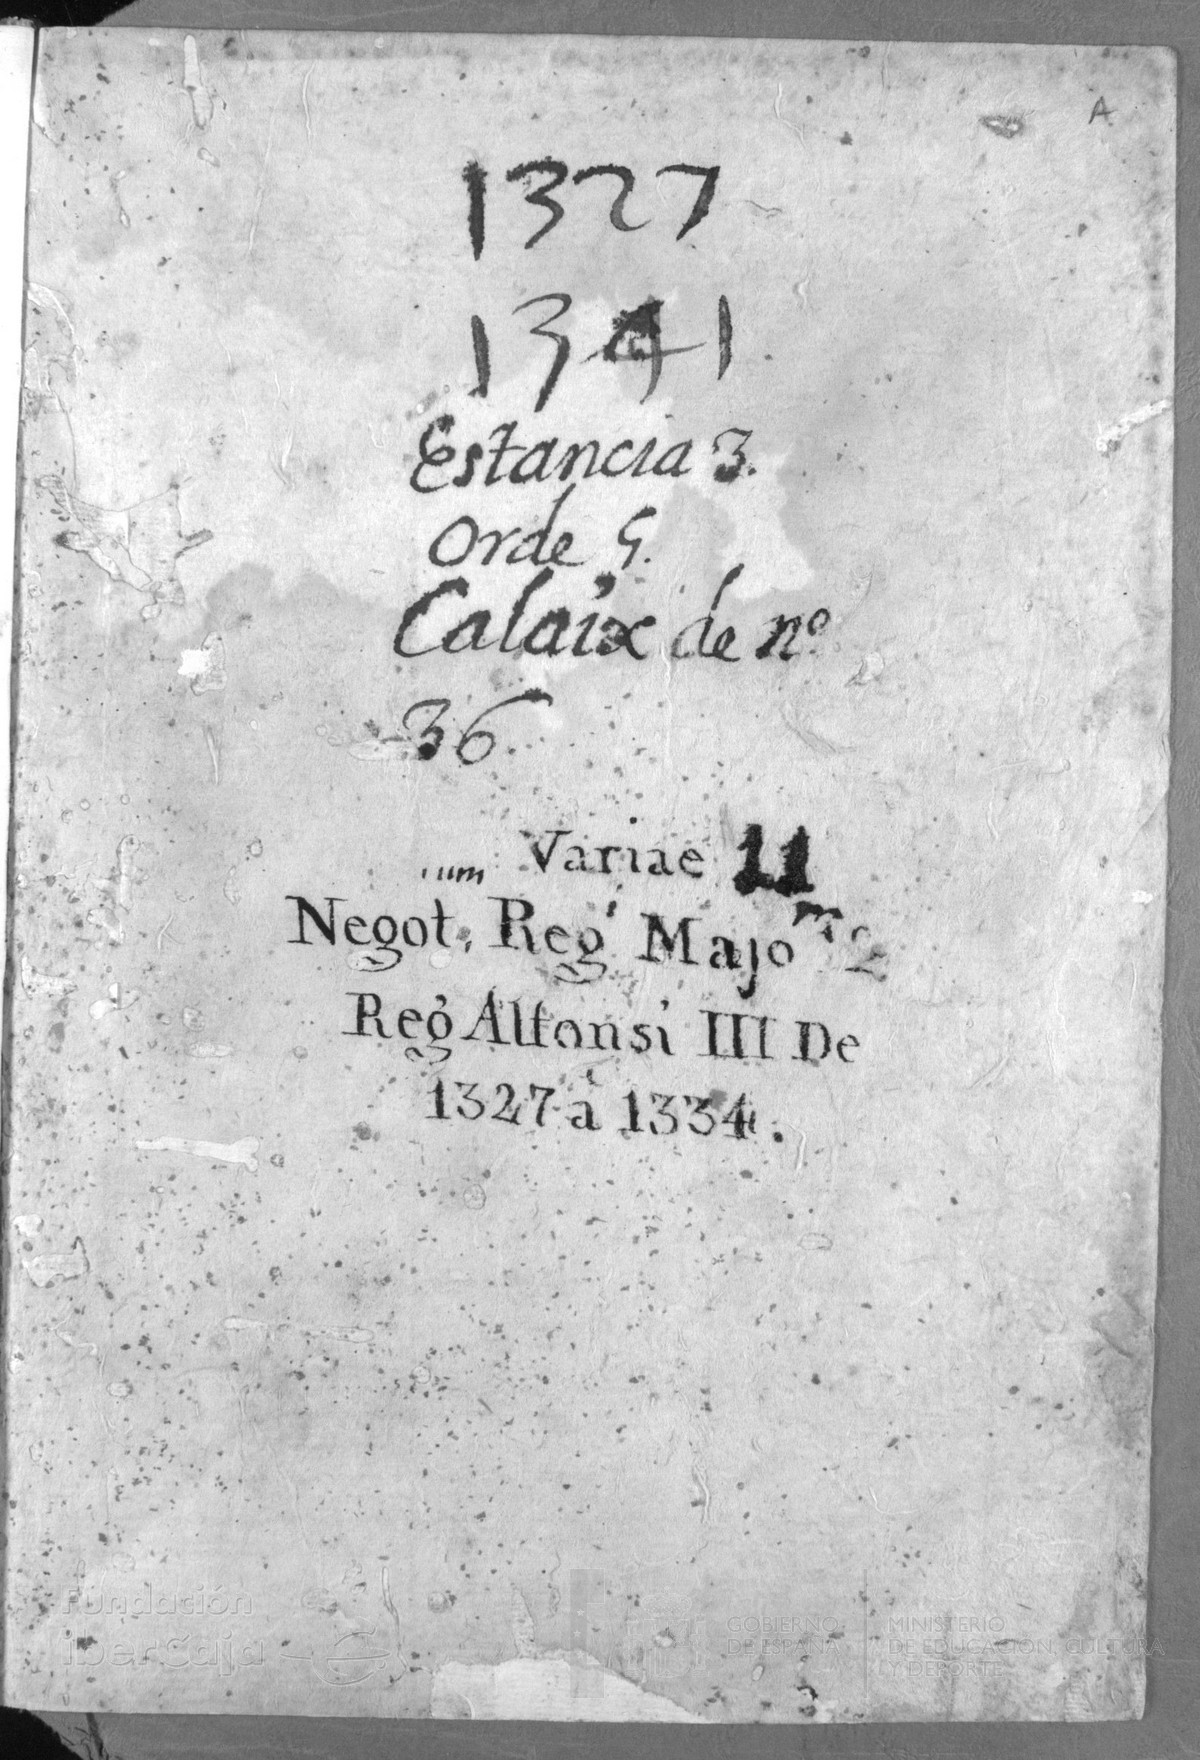 A
1327
1341
Estancia 3.
Orde 5.
Calaix de nº
36
Variae 11
Negot.um Reg.i Majo.m 2
Reg.i Alfonsi III De
1327 à 1334.
Fundación
iberCaja
GOBIERNO
DE ESPAÑA
MINISTERIO
DE EDUCACIÓN, CULTURA
Y DEPORTE